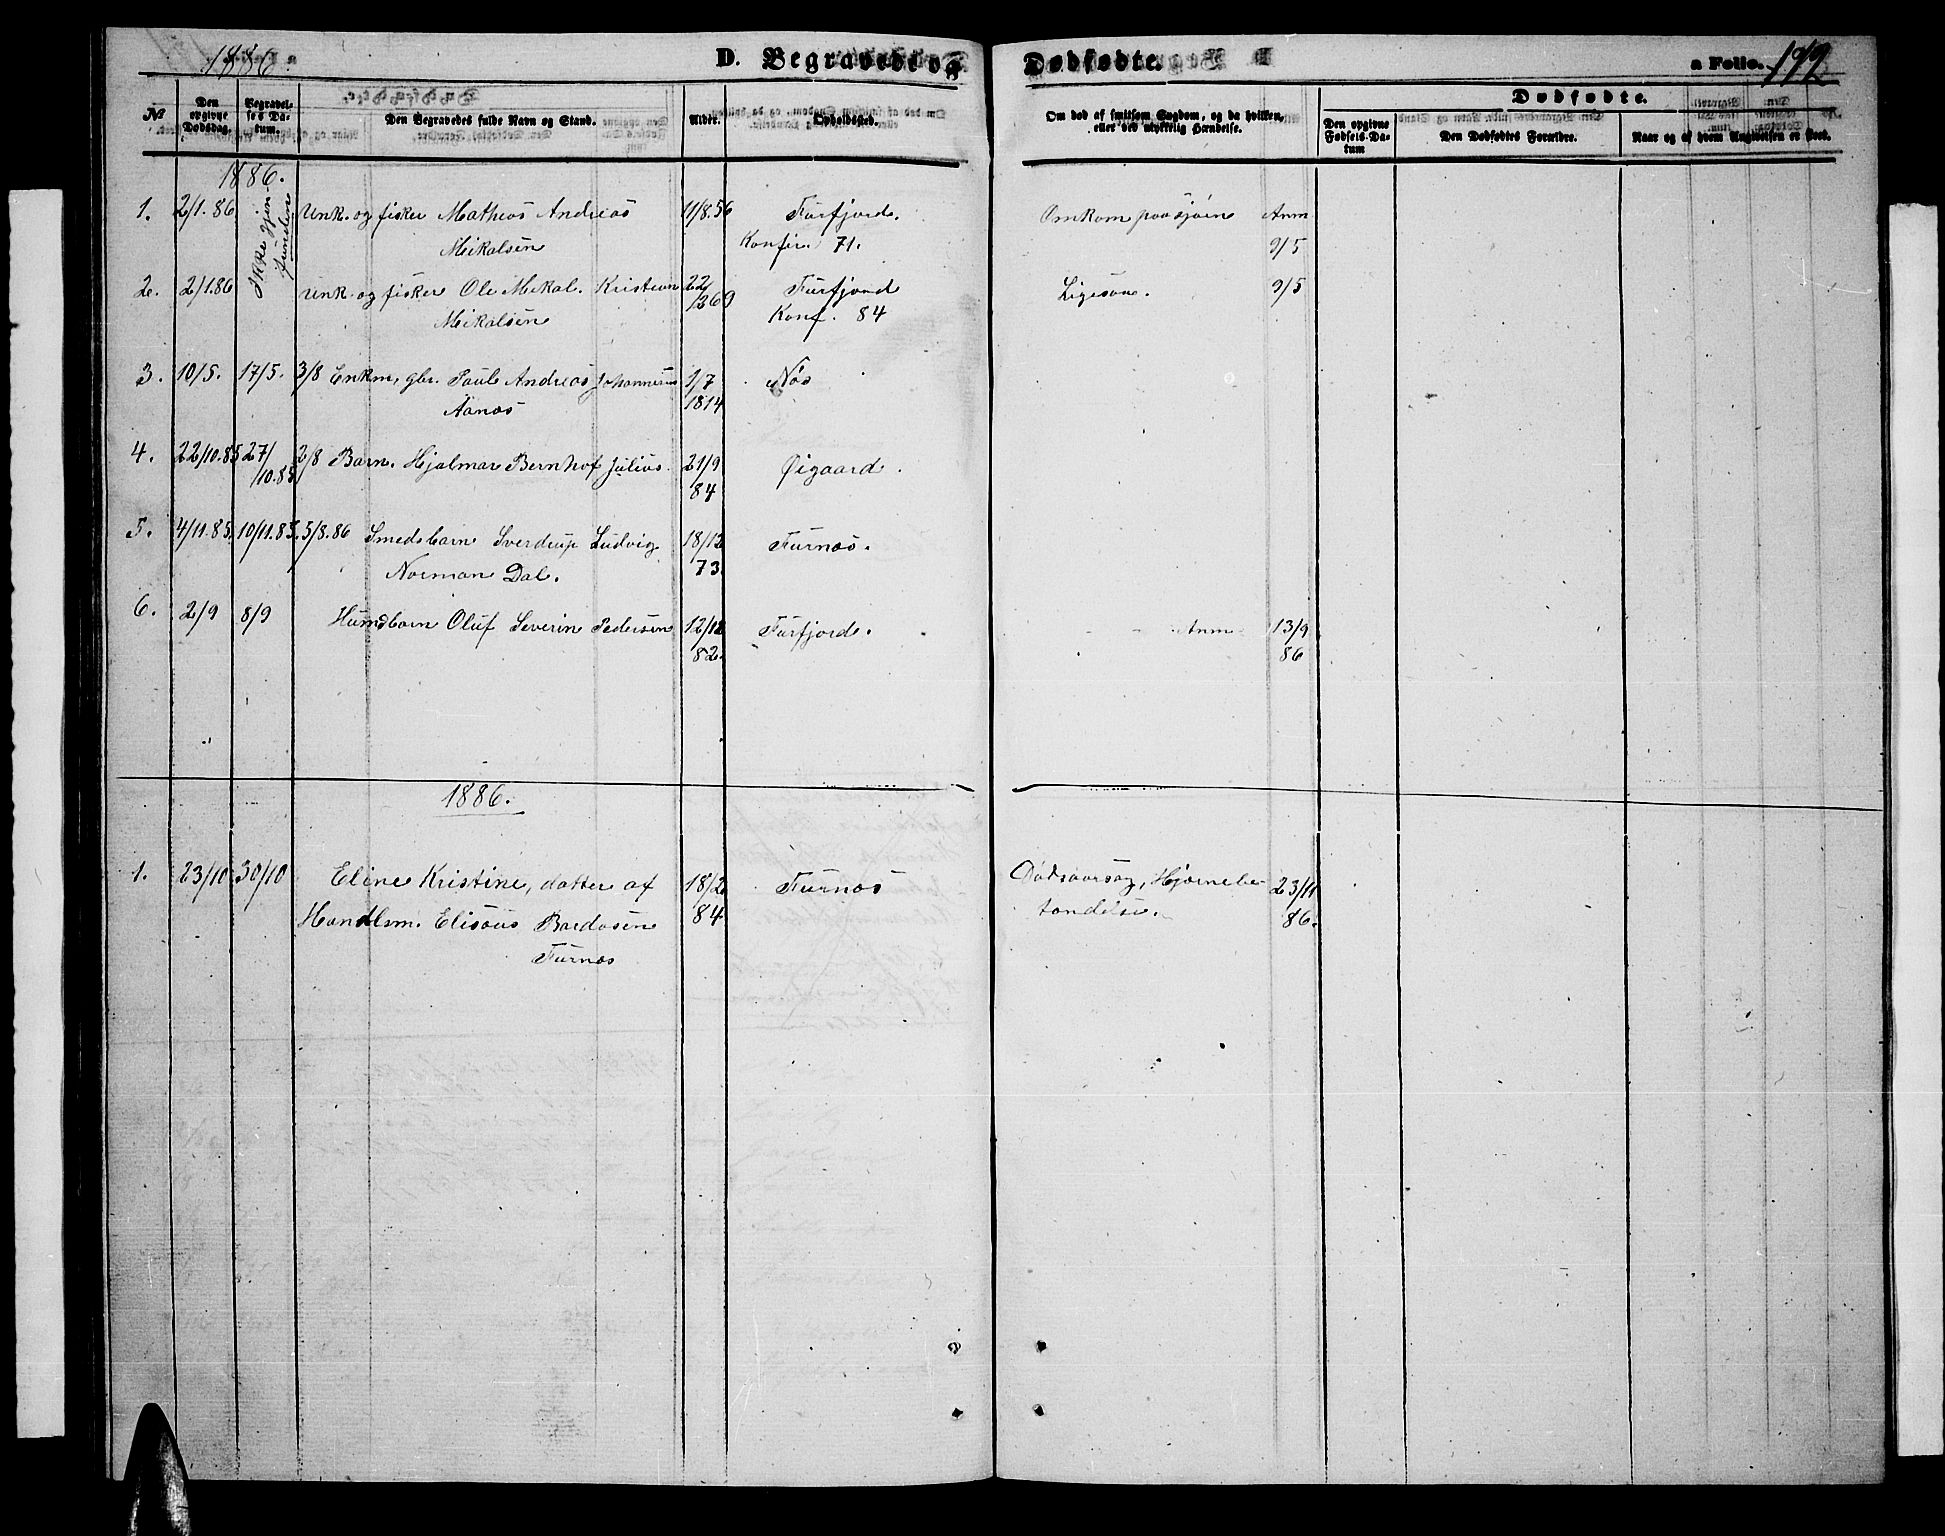 1886.
D. Begravede og Dødfødte.
a Folio. 199
№
Den opgivne Dødsdag.
Begravelses Datum.
Den Begravedes fulde Navn og Stand.
Alder.
Opholdssted.
Om død af smitsom Sygdom, og da hvilken, eller ved ulykkelig Hændelse.
Dødfødte.
Den opgivne Fødsels-Datum
Den Dødfødtes Forældre.
Naar og af hvem Anmeldelsen er skeet.
1886.
1. 2/1.86 Ikke gjenfunden Unk. og fisker Mathias Andreas 11/8.56 Furfjord. Omkom paa sjøen Anm
Mikalsen Konfir. 71. 9/5
2. 2/1.86 Unk. og fisker Ole Mikal Kristian 22/269 Furfjord Ligesaa. 9/5
Mikalsen Konf. 84
3. 10/5. 17/5. 3/8 Enkm, gbr. Paul Andreas Johannesen 1/7 Nös
Aanæs 1814
4. 22/10.85 27/10.85 2/8 Barn. Hjalmar Bernhof Julius. 21/9 Øigaard.
84
5. 4/11.85. 10/11.85. 5/8.86 Smedsbarn Sverdrup Ludvig 18/12 Furnæs.
Norman Dal. 73.
6. 2/9 8/9 Husmdbarn Oluf Severin Pedersen 12/12 Furfjord. Anm 13/9
82. 86
1886.
1. 23/10 30/10 Eline Kristine, datter af 18/2 Furnæs Dødsaarsag, Hjernebe- 23/11
Handlsm. Elisæus Bardosen 84 tændelse. 86.
Furnæs